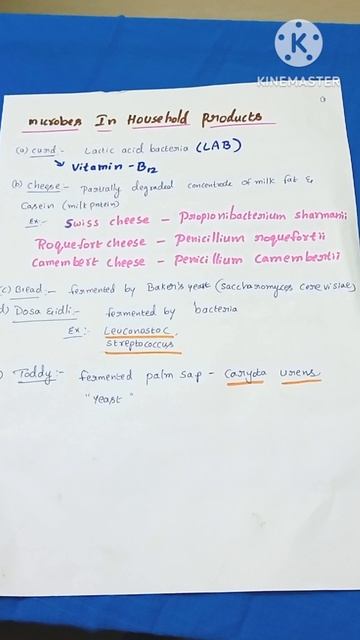 KINEMASTER
Microbes In Household Products
(a) curd :- Lactic acid bacteria (LAB)
Vitamin - B12
(b) cheese - Partially degraded concentrate of milk fat &
Casein (milk protein)
Ex:- Swiss cheese - Propionibacterium sharmanii
Roquefort cheese - Penicillium roquefortii
Camembert cheese - Penicillium Camembertii
(c) Bread - fermented by Baker's yeast (saccharomyces cerevisiae)
d) Dosa & idli :- fermented by bacteria
Ex :- Leuconostoc,
Streptococcus
) Toddy :- fermented palm sap - Caryota urens
"Yeast"